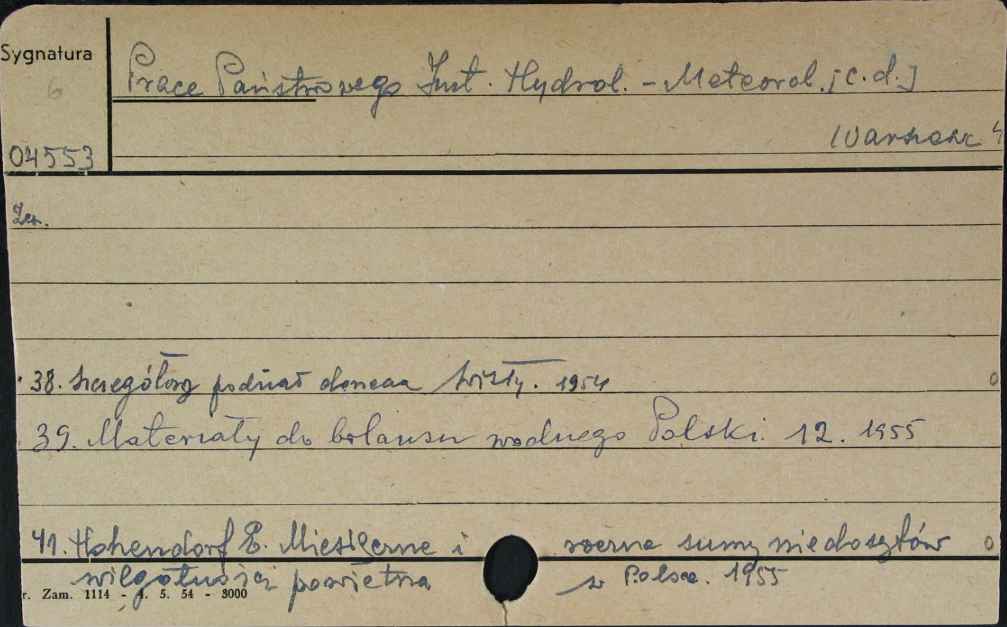 Sygnatura
6
Prace Państwowego Inst. Hydrol. - Meteorol. [c.d.]
Warszawa 4
04553
Zer.
38. Szczegółowy podział dorzecza Wisły. 1954 0
39. Materiały do bilansu wodnego Polski. 12. 1955
41. Hohendorf E. Miesięczne i roczne sumy niedosytów 0
wilgotności powietrza w Polsce. 1955
r. Zam. 1114 - 4. 5. 54 - 3000